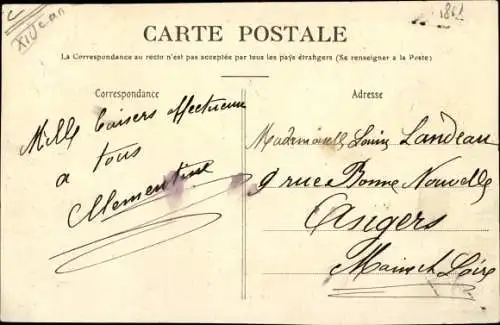 1861
CARTE POSTALE
La Correspondance au recto n'est pas acceptée par tous les pays étrangers (Se renseigner à la Poste)
Correspondance
Adresse
Mille baisers affectueux
a tous
Clementine
Mademoiselle Louise Landeau
9 rue Bonne Nouvelle
Angers
Maine et Loire